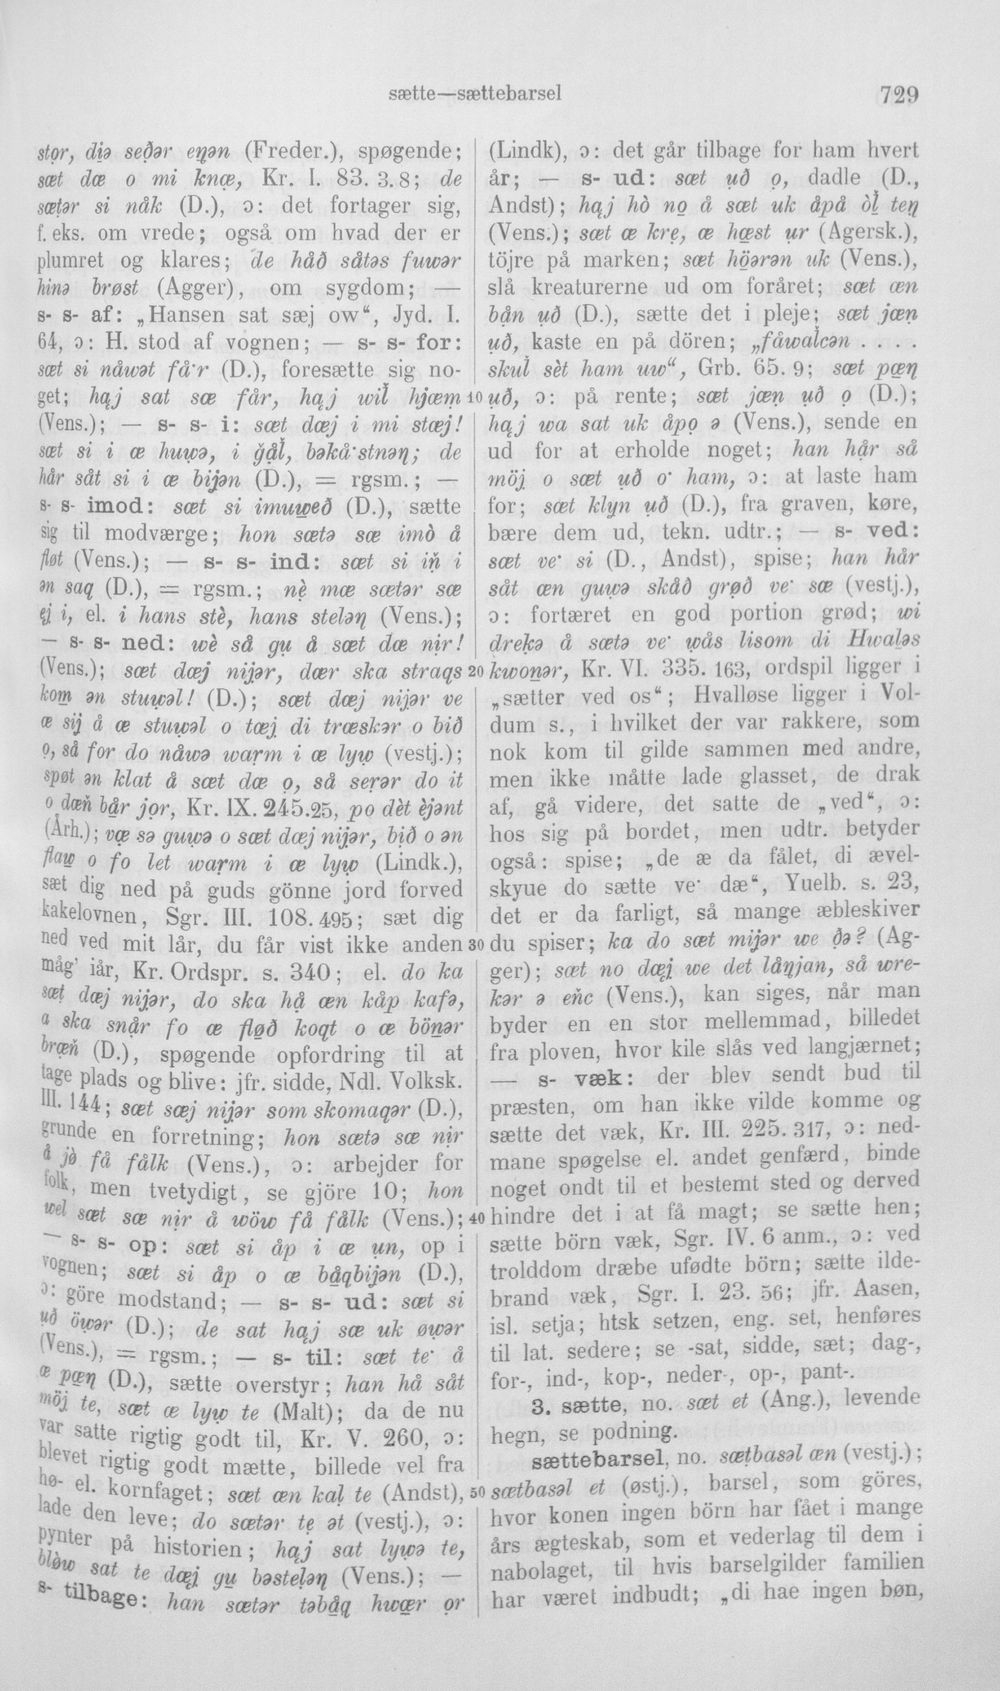 sætte—sættebarsel 729
stọr, diə seðər eŋən (Freder.), spøgende;
sæt dæ o mi knæ, Kr. I. 83. 3. 8; de
sætər si nåk (D.), ɔ: det fortager sig,
f. eks. om vrede; også om hvad der er
plumret og klares; de håð såtəs fuwər
hinə brøst (Agger), om sygdom; —
s- s- af: „Hansen sat sæj ow“, Jyd. I.
64, ɔ: H. stod af vognen; — s- s- for:
sæt si nåwət få·r (D.), foresætte sig no-
get; hąj sat sæ får, hąj wil hjæm 10
(Vens.); — s- s- i: sæt dæj i mi stæj!
sæt si i æ huwə, i ğål, bəkå·stnəŋ; de
hår såt si i æ bijən (D.), = rgsm.; —
s- s- imod: sæt si imuweð (D.), sætte
sig til modværge; hon sætə sæ imò å
fløt (Vens.); — s- s- ind: sæt si iń i
ən saq (D.), = rgsm.; nè mæ sætər sæ
ej i, el. i hans stè, hans steləŋ (Vens.);
— s- s- ned: wè så gu å sæt dæ nir!
(Vens.); sæt dæj nijər, dær ska straqs 20
kom ən stuwəl! (D.); sæt dæj nijər ve
æ sij å æ stuwəl o tæj di træskər o bið
o, så for do nåwə warm i æ lyw (vestj.);
spøt ən klat å sæt dæ o, så serər do it
o dæń bår jor, Kr. IX. 245. 25, po dèt èjənt
(Årh. ); væ sə guwə o sæt dæj nijər, bið o ən
flaw o fo let warm i æ lyw (Lindk.),
sæt dig ned på guds gönne jord forved
kakelovnen, Sgr. III. 108. 495; sæt dig
ned ved mit lår, du får vist ikke anden 30
måg' iår, Kr. Ordspr. s. 340; el. do ka
sæt dæj nijər, do ska hå æn kåp kafə,
a ska snår fo æ fløð koqt o æ bönər
bræń (D.), spøgende opfordring til at
tage plads og blive: jfr. sidde, Ndl. Volksk.
III. 144; sæt sæj nijər som skomaqər (D.),
grunde en forretning; hon sætə sæ nir
å jò få fålk (Vens.), ɔ: arbejder for
folk, men tvetydigt, se gjöre 10; hon
wel sæt sæ nir å wöw få fålk (Vens.); 40
— s- s- op: sæt si åp i æ un, op i
vognen; sæt si åp o æ båqbijən (D.),
ɔ: göre modstand; — s- s- ud: sæt si
uð öwər (D.); de sat hąj sæ uk øwər
(Vens.), = rgsm.; — s- til: sæt te· å
æ pæŋ (D.), sætte overstyr; han hå såt
möj te, sæt æ lyw te (Malt); da de nu
var satte rigtig godt til, Kr. V. 260, ɔ:
blevet rigtig godt mætte, billede vel fra
hø- el. kornfaget; sæt æn kal te (Andst), 50
lade den leve; do sætər te ət (vestj.), ɔ:
pynter på historien; hąj sat lywə te,
blòw sat te dæj gu bəsteləŋ (Vens.); —
s- tilbage: han sætər təbåq hwær or
(Lindk), ɔ: det går tilbage for ham hvert
år; — s- ud: sæt uð o, dadle (D.,
Andst); hąj hò no å sæt uk åpå òl teŋ
(Vens.); sæt æ kre, æ hæst ur (Agersk.),
töjre på marken; sæt höərən uk (Vens.),
slå kreaturerne ud om foråret; sæt æn
bån uð (D.), sætte det i pleje; sæt jæn
uð, kaste en på dören; „fåwalcən ....
skul sèt ham uw“, Grb. 65. 9; sæt pæŋ
uð, ɔ: på rente; sæt jæn uð o (D.);
hąj wa sat uk åpo ə (Vens.), sende en
ud for at erholde noget; han hår så
möj o sæt uð o· ham, ɔ: at laste ham
for; sæt klyn uð (D.), fra graven, køre,
bære dem ud, tekn. udtr.; — s- ved:
sæt ve· si (D., Andst), spise; han hår
såt æn guwə skåð grøð ve· sæ (vestj.),
ɔ: fortæret en god portion grød; wi
drekə å sætə ve· wås lisom di Hwaləs
kwonər, Kr. VI. 335. 163, ordspil ligger i
„sætter ved os“; Hvalløse ligger i Vol-
dum s., i hvilket der var rakkere, som
nok kom til gilde sammen med andre,
men ikke måtte lade glasset, de drak
af, gå videre, det satte de „ved“, ɔ:
hos sig på bordet, men udtr. betyder
også: spise; „de æ da fålet, di ævel-
skyue do sætte ve· dæ“, Yuelb. s. 23,
det er da farligt, så mange æbleskiver
du spiser; ka do sæt mijər we ðə? (Ag-
ger); sæt no dæj we det låŋjan, så wre-
kər ə eńc (Vens.), kan siges, når man
byder en en stor mellemmad, billedet
fra ploven, hvor kile slås ved langjærnet;
— s- væk: der blev sendt bud til
præsten, om han ikke vilde komme og
sætte det væk, Kr. III. 225. 317, ɔ: ned-
mane spøgelse el. andet genfærd, binde
noget ondt til et bestemt sted og derved
hindre det i at få magt; se sætte hen;
sætte börn væk, Sgr. IV. 6 anm., ɔ: ved
trolddom dræbe ufødte börn; sætte ilde-
brand væk, Sgr. I. 23. 56; jfr. Aasen,
isl. setja; htsk setzen, eng. set, henføres
til lat. sedere; se -sat, sidde, sæt; dag-,
for-, ind-, kop-, neder-, op-, pant-.
3. sætte, no. sæt et (Ang.), levende
hegn, se podning.
sættebarsel, no. sætbasəl æn (vestj.);
sætbasəl et (østj.), barsel, som göres,
hvor konen ingen börn har fået i mange
års ægteskab, som et vederlag til dem i
nabolaget, til hvis barselgilder familien
har været indbudt; „di hae ingen bøn,